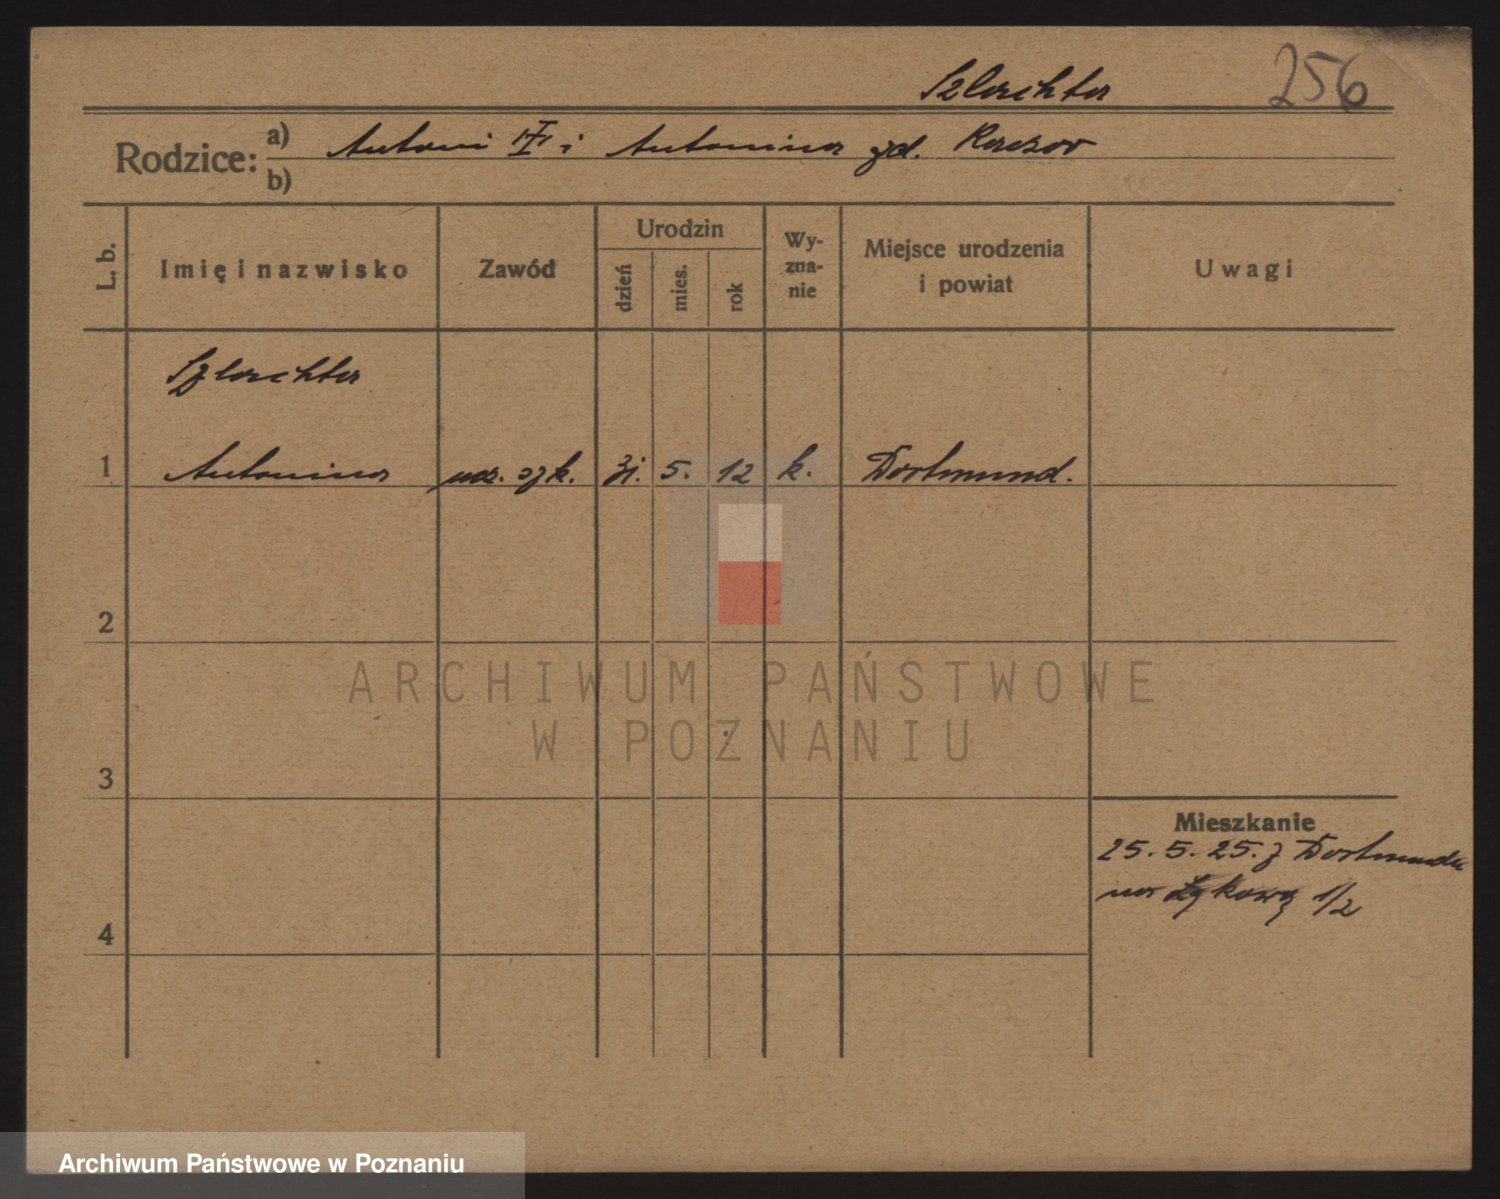 256
Szlachta
Rodzice: a) Antoni i Antonina zd.
b)
L. b.
Imię i nazwisko
Zawód
Urodzin
dzień
mies.
rok
Wy-
zna-
nie
Miejsce urodzenia
i powiat
Uwagi
Szlachta
1 Antonina ucz. szk. 31. 5. 12 k. Dortmund.
2
3
4
Mieszkanie
25. 5. 25. z Dortmundu
na Łąkową 1/2
ARCHIWUM PAŃSTWOWE
W POZNANIU
Archiwum Państwowe w Poznaniu